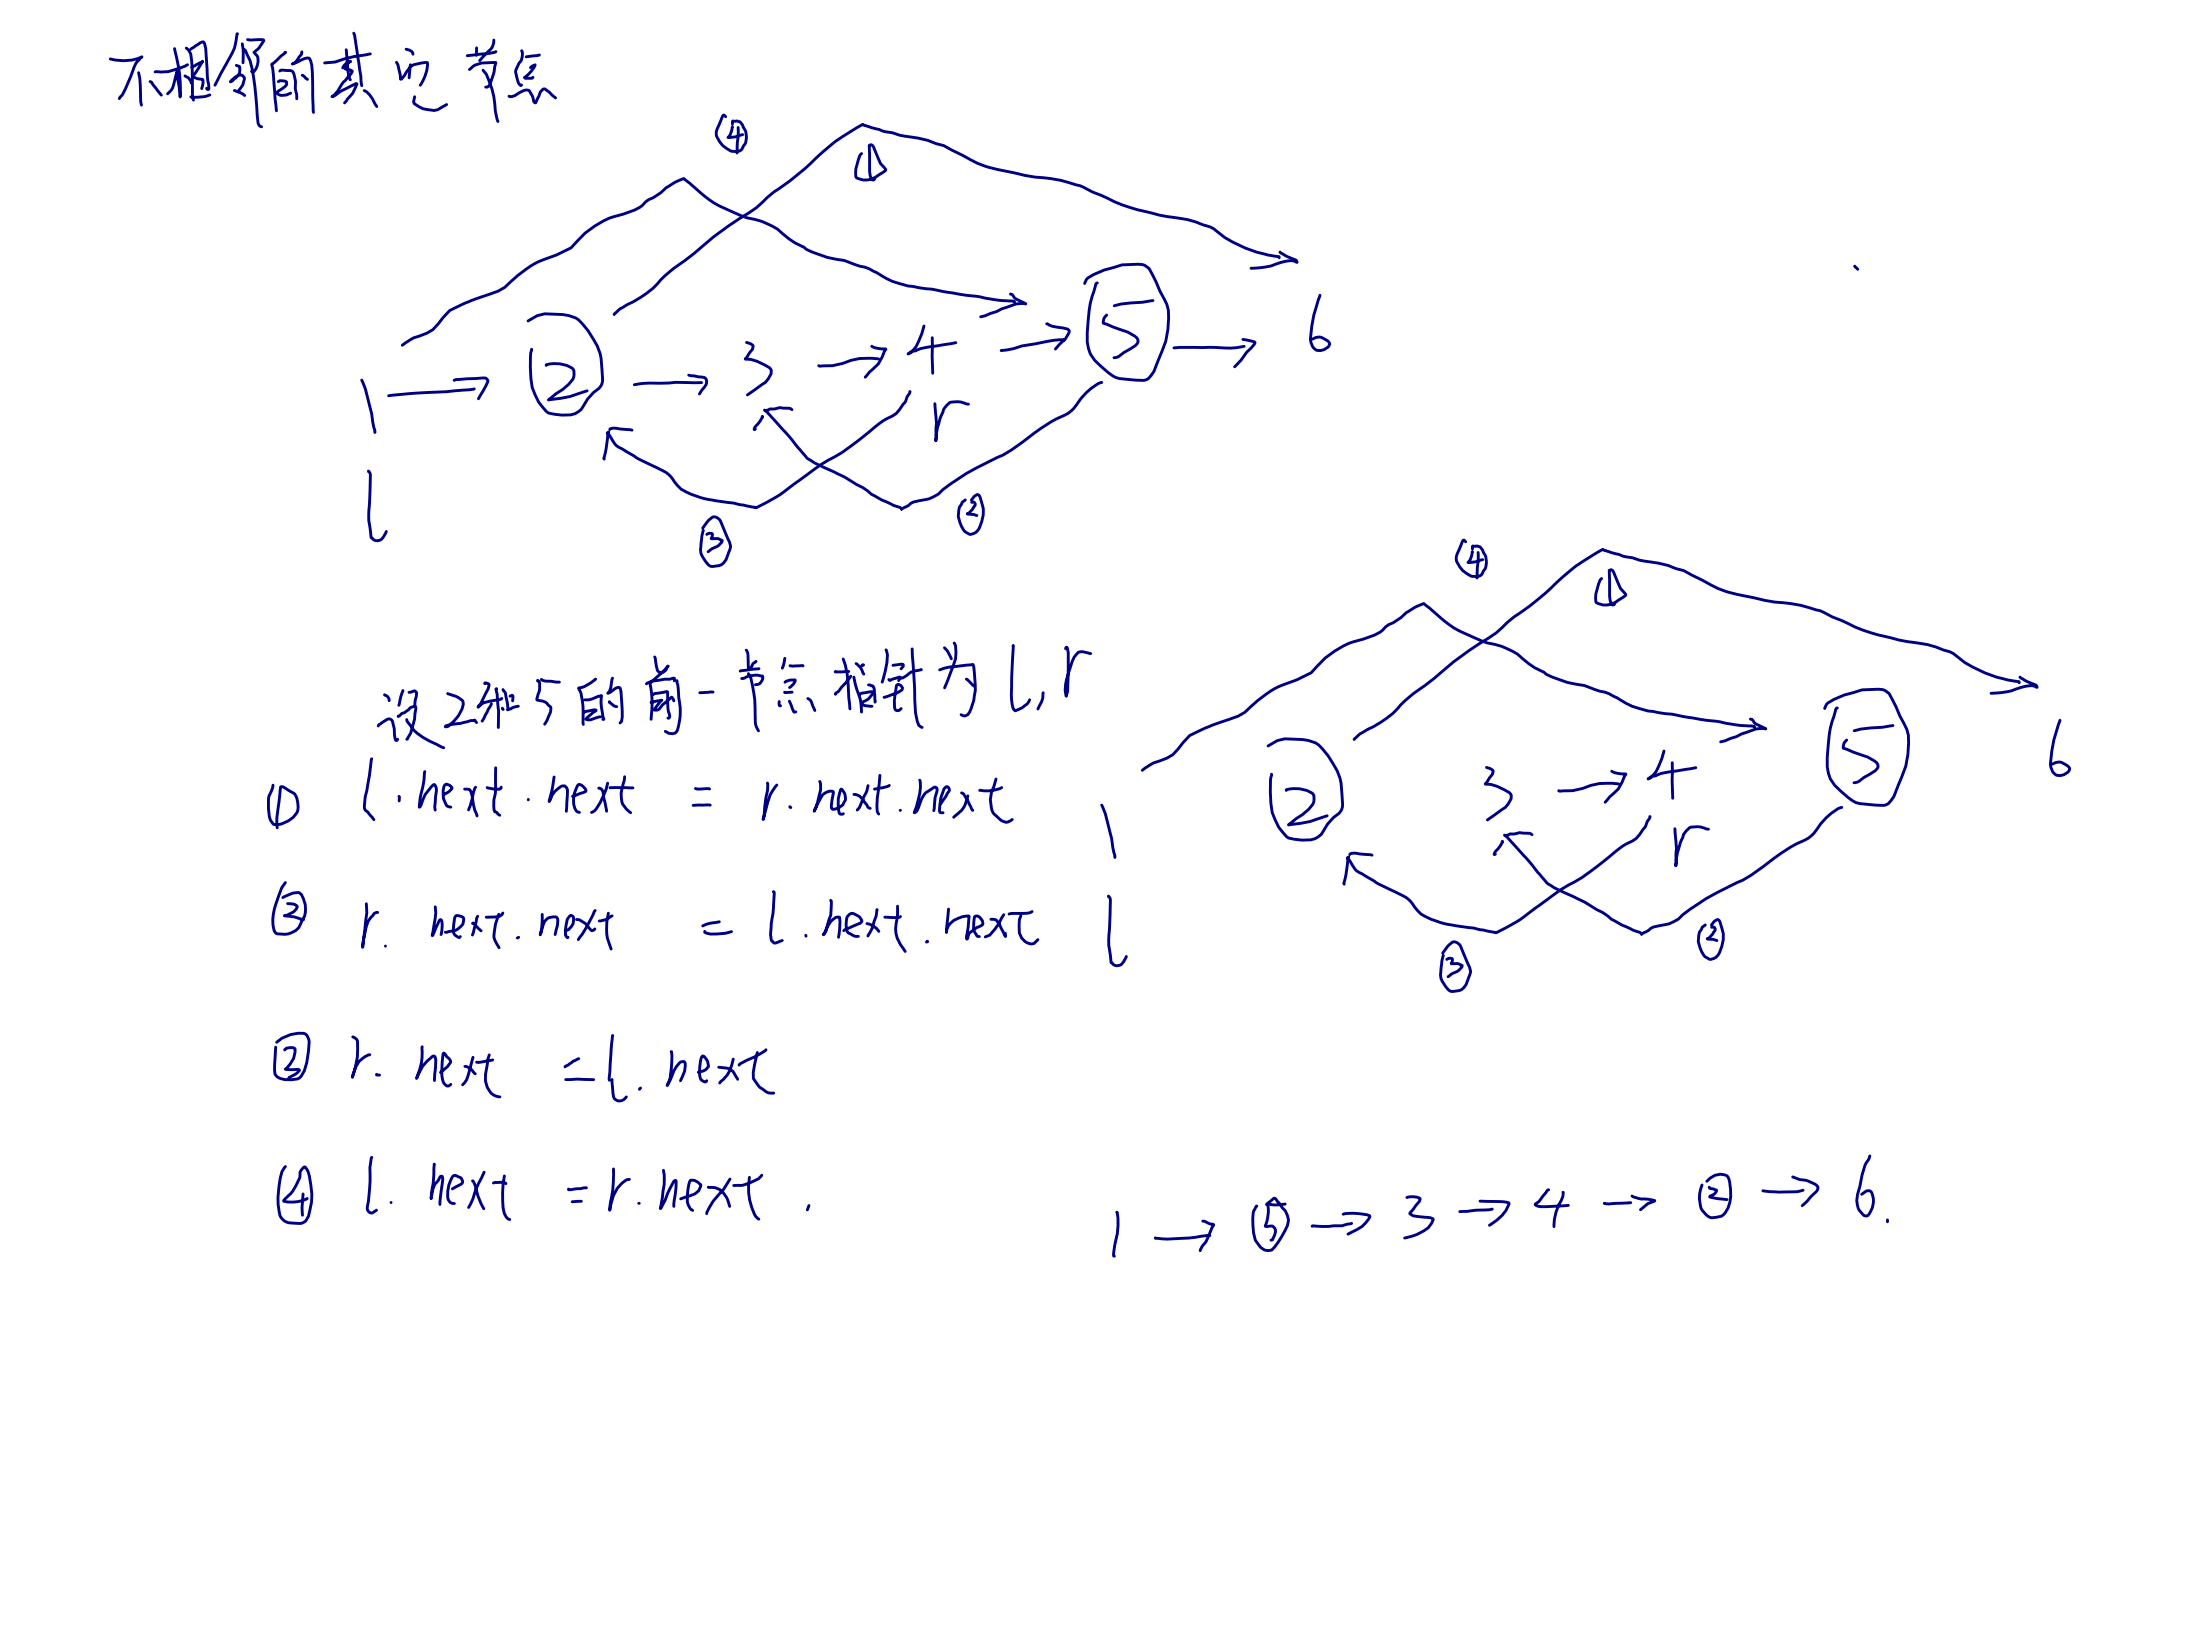 不相邻的其它节点
④ ①
1 → ② → 3 → 4 → ⑤ → 6
l r
③ ②
④ ①
设2和5的前一节点指针为 l, r
1 ② 3 → 4 ⑤ 6
① l.next.next = r.next.next
r
② r.next.next = l.next.next
l
③ ②
② r.next = l.next
④ l.next = r.next.
1 → ⑤ → 3 → 4 → ② → 6.